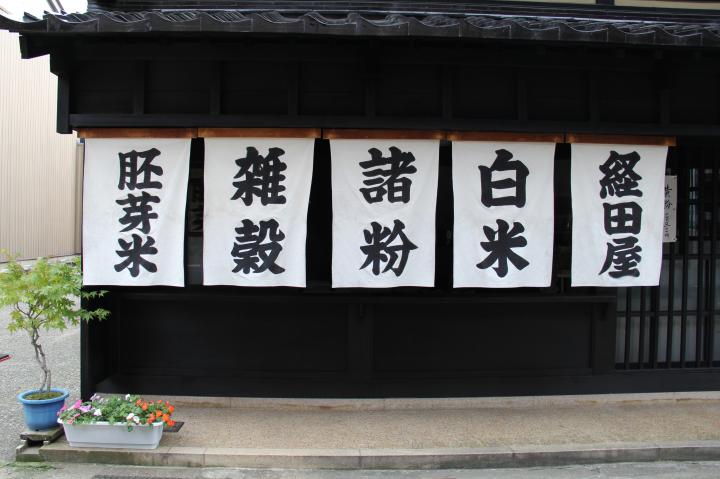 経田屋
白米
諸粉
雑穀
胚芽米